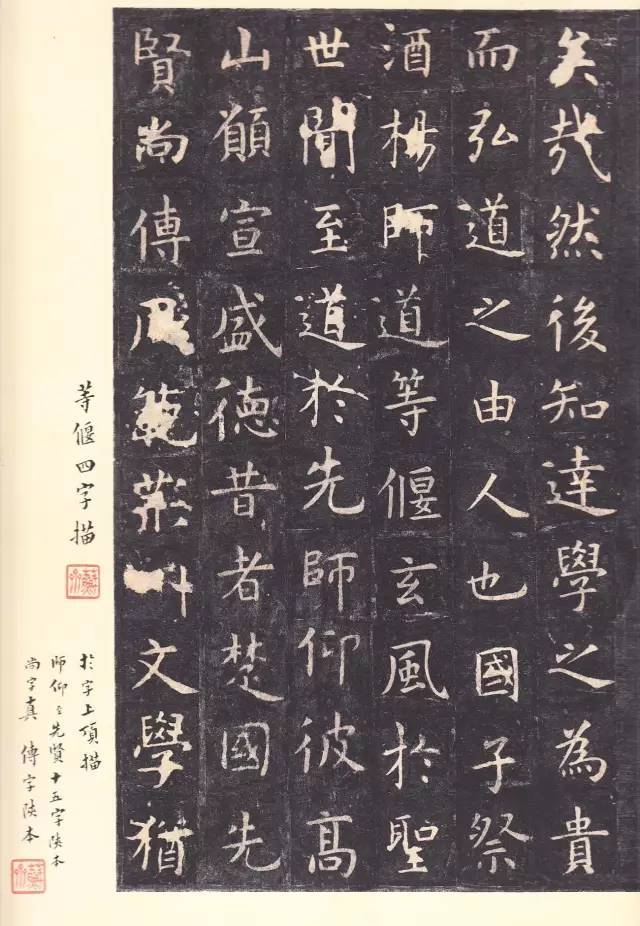 矣哉然後知達學之為貴
而弘道之由人也國子祭
酒楊師道等偃玄風於聖
世聞至道於先師仰彼高
山願宣盛德昔者楚國先
賢尚傳風範荊州文學猶
等偃四字描
於字上頂描
師仰至先賢十五字陝本
尚字真 傳字陝本